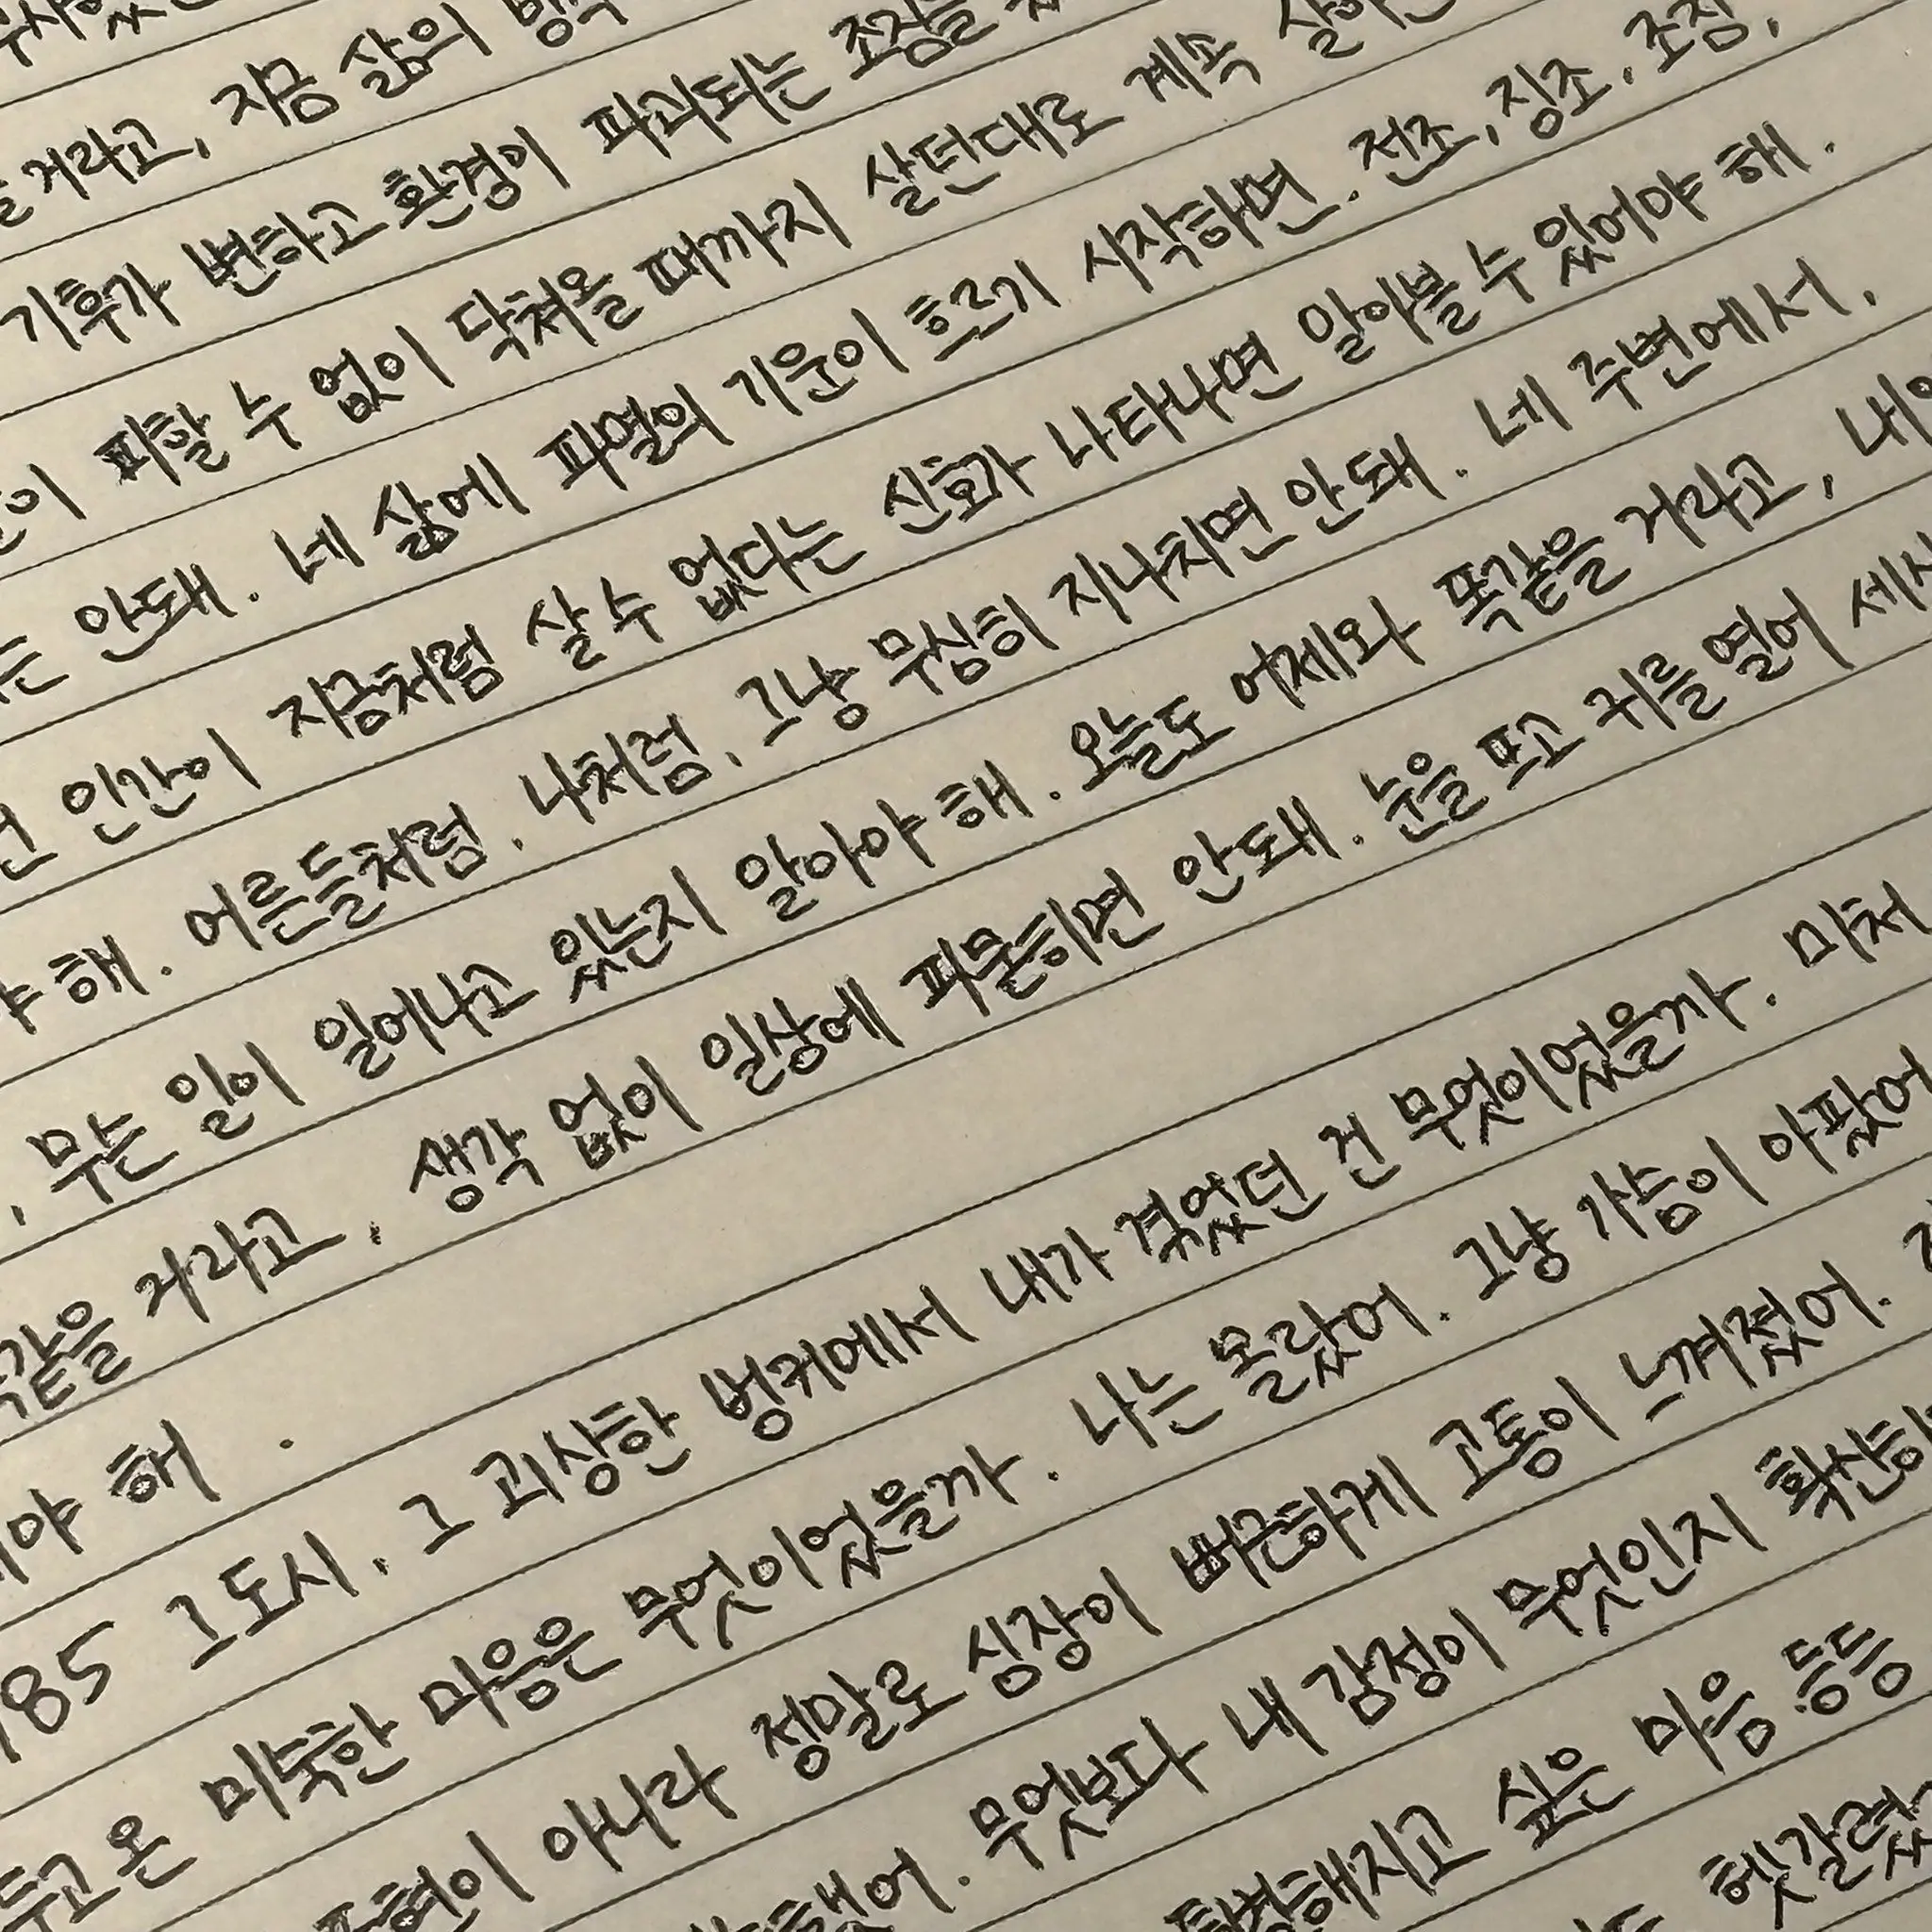 거라고, 지금 삶의 방식
기후가 변하고 환경이 파괴되는 조짐을
피할 수 없이 닥쳐올 때까지 살던대로 계속
는 안돼. 네 삶에 파멸의 기운이 흐르기 시작하면. 전조, 징조, 조짐,
인간이 지금처럼 살 수 없다는 신호가 나타나면 알아볼 수 있어야 해.
야 해. 어른들처럼, 나처럼, 그냥 무심히 지나치면 안돼. 네 주변에서,
, 무슨 일이 일어나고 있는지 알아야 해. 오늘도 어제와 똑같을 거라고, 내일
똑같을 거라고, 생각 없이 일상에 파묻히면 안돼. 눈을 뜨고 귀를 열어 세상
야 해.
85 그 도시, 그 괴상한 벙커에서 내가 겪었던 건 무엇이었을까. 미처
두고 온 미숙한 마음은 무엇이었을까. 나는 몰랐어. 그냥 가슴이 아팠어
표현이 아니라 정말로 심장이 뻐근하게 고통이 느껴졌어.
했어. 무엇보다 내 감정이 무엇인지
해지고 싶은 마음 등등
헷갈렸